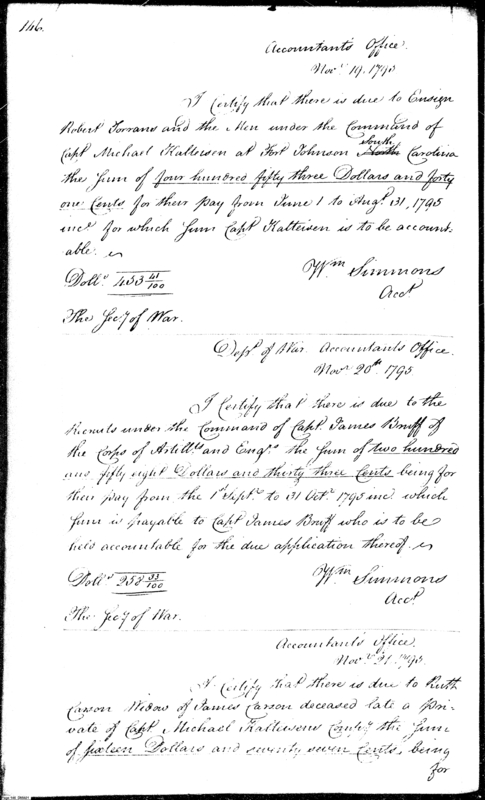 146.
Accountant's Office.
Novr. 19. 1795
I Certify that there is due to Ensign
Robert Torrans and the Men under the Command of
Capt Michael Kalteisen at Fort Johnson South North Carolina
the Sum of four hundred fifty three Dollars and forty
one Cents for their pay from June 1 to Augt. 31, 1795
incl. for which Sum Capt Kalteisen is to be account-
able.
Dolls. 453 41/100
Wm Simmons
Acct.
The Secy of War.
Dept. of War Accountants Office.
Novr. 20th. 1795
I Certify that there is due to the
Recruits under the Command of Capt James Bruff of
the Corps of Artills. and Engrs. the Sum of two hundred
and fifty eight Dollars and thirty three Cents being for
their pay from the 1st Septr. to 31 Octr. 1795 incl which
Sum is payable to Capt James Bruff who is to be
held accountable for the due application thereof
Dolls. 258 33/100
Wm Simmons
Acct.
The Secy of War.
Accountants Office.
Novr. 21. 1795.
I Certify that there is due to Ruth
Carson Widow of James Carson deceased late a pri-
vate of Capt Michael Kalteisens Compy the Sum
of sixteen Dollars and seventy seven Cents, being
for